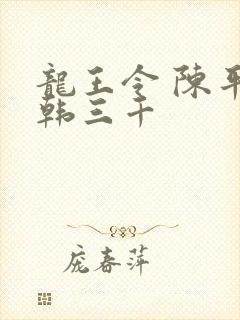 龍王令 陳平
韩三千
庞春萍